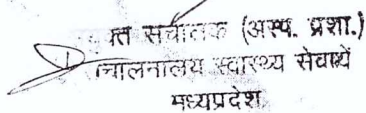 क्त संचालक (अस्प. प्रशा.)
संचालनालय स्वास्थ्य सेवायें
मध्यप्रदेश